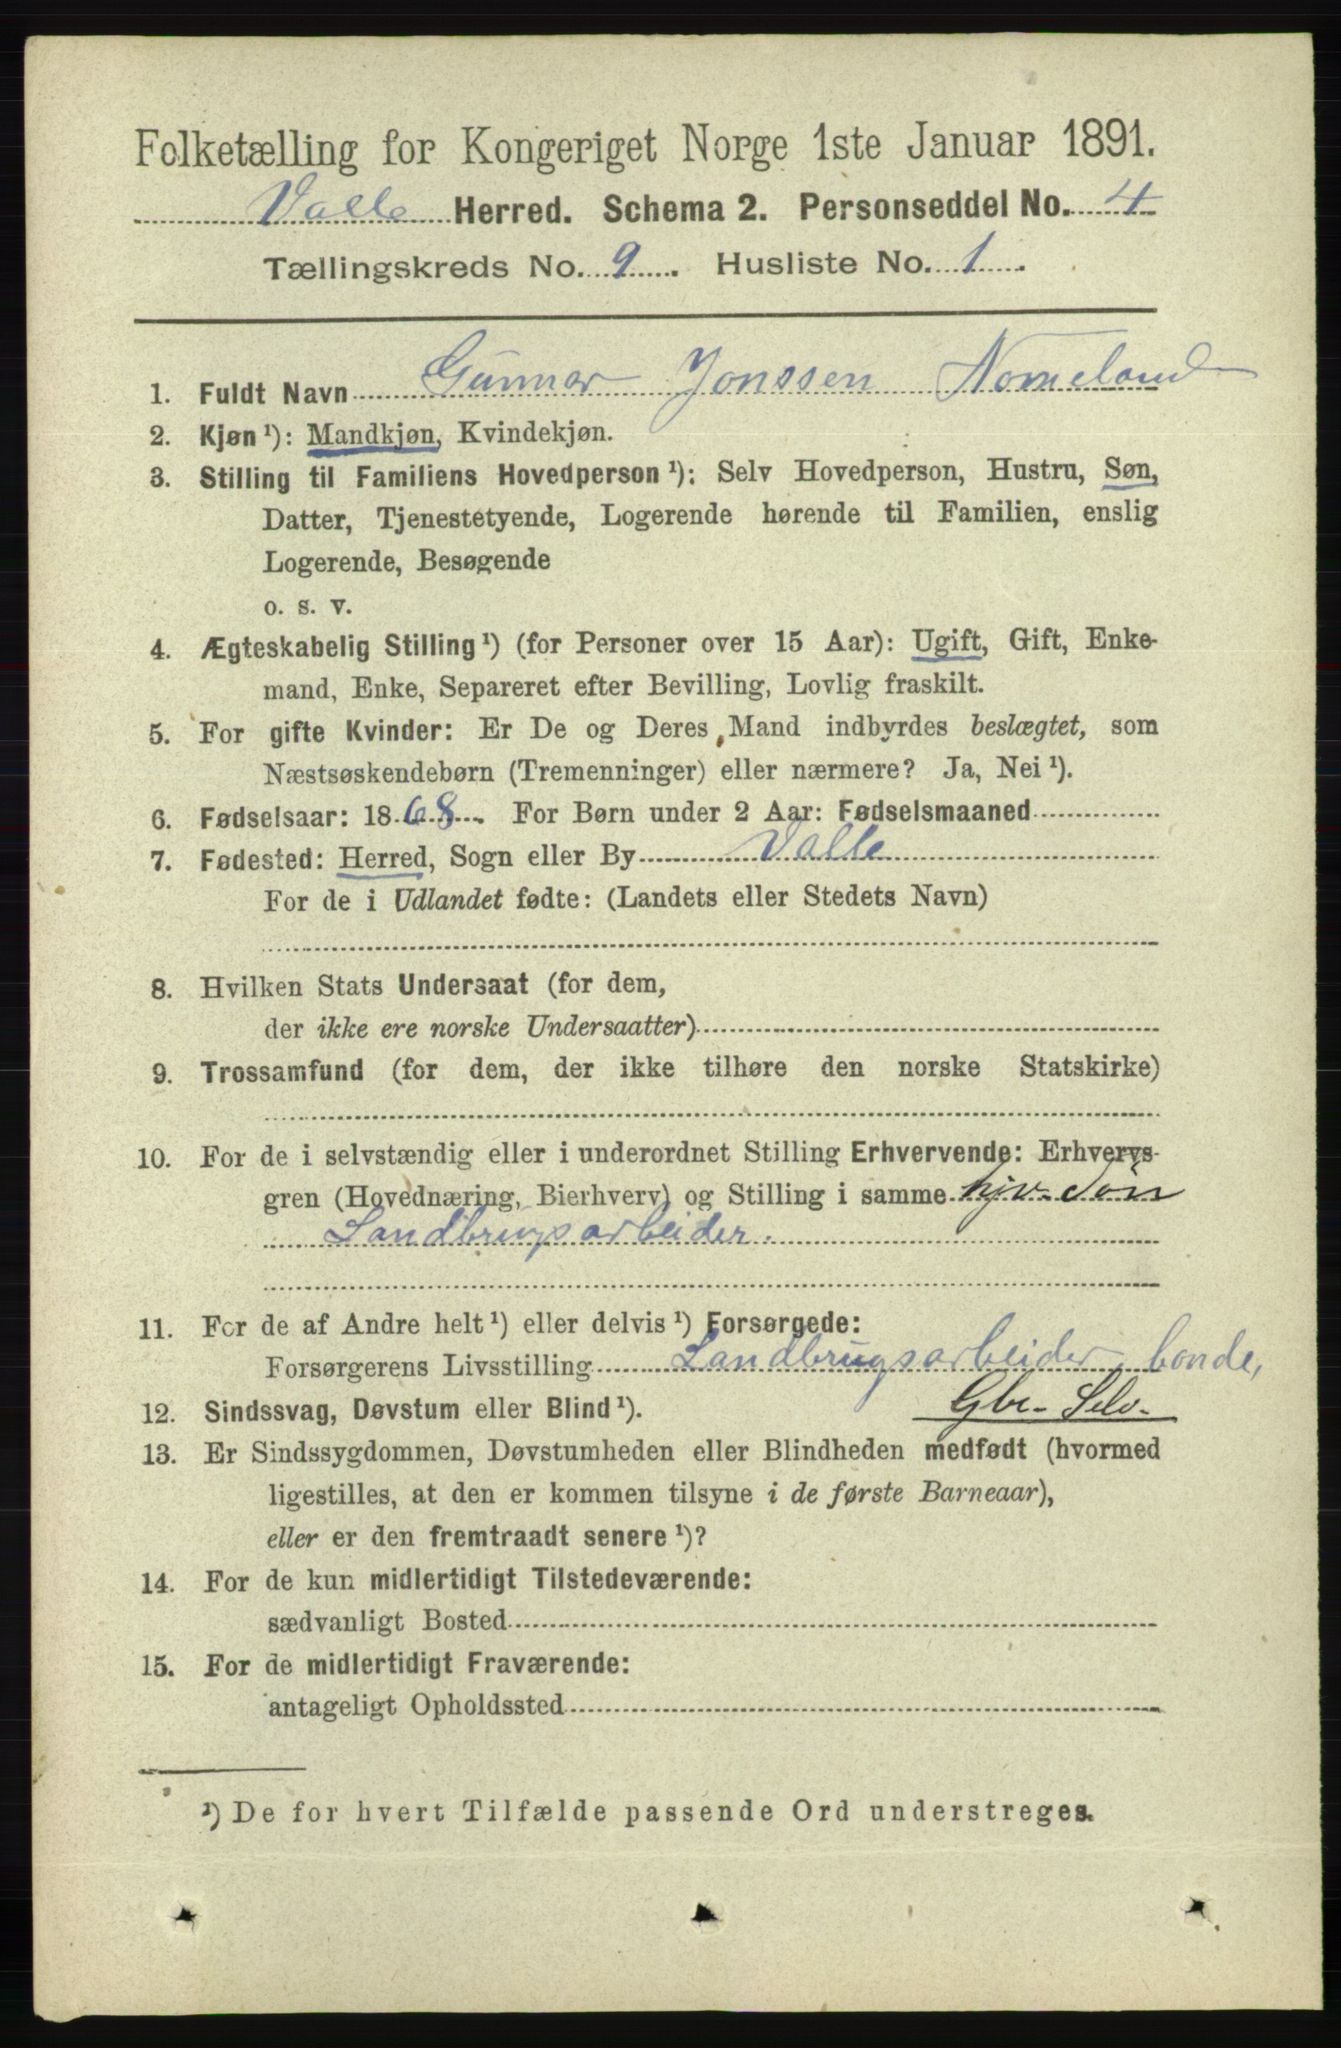 Folketælling for Kongeriget Norge 1ste Januar 1891.
Valle Herred. Schema 2. Personseddel No. 4
Tællingskreds No. 9. Husliste No. 1.
1. Fuldt Navn Gunnar Jonssen Nomeland
2. Kjøn¹): Mandkjøn, Kvindekjøn.
3. Stilling til Familiens Hovedperson¹): Selv Hovedperson, Hustru, Søn,
Datter, Tjenestetyende, Logerende hørende til Familien, enslig
Logerende, Besøgende
o. s. v.
4. Ægteskabelig Stilling¹) (for Personer over 15 Aar): Ugift, Gift, Enke-
mand, Enke, Separeret efter Bevilling, Lovlig fraskilt.
5. For gifte Kvinder: Er De og Deres Mand indbyrdes beslægtet, som
Næstsøskendebørn (Tremenninger) eller nærmere? Ja, Nei¹).
6. Fødselsaar: 1868. For Børn under 2 Aar: Fødselsmaaned
7. Fødested: Herred, Sogn eller By Valle
For de i Udlandet fødte: (Landets eller Stedets Navn)
8. Hvilken Stats Undersaat (for dem,
der ikke ere norske Undersaatter)
9. Trossamfund (for dem, der ikke tilhøre den norske Statskirke)
10. For de i selvstændig eller i underordnet Stilling Erhvervende: Erhvervs-
gren (Hovednæring, Bierhverv) og Stilling i samme hjv. Søn
Landbrugsarbeider.
11. For de af Andre helt¹) eller delvis¹) Forsørgede:
Forsørgerens Livsstilling Landbrugsarbeider, bonde,
Gbr. Selv.
12. Sindssvag, Døvstum eller Blind¹).
13. Er Sindssygdommen, Døvstumheden eller Blindheden medfødt (hvormed
ligestilles, at den er kommen tilsyne i de første Barneaar),
eller er den fremtraadt senere¹)?
14. For de kun midlertidigt Tilstedeværende:
sædvanligt Bosted
15. For de midlertidigt Fraværende:
antageligt Opholdssted
¹) De for hvert Tilfælde passende Ord understreges.